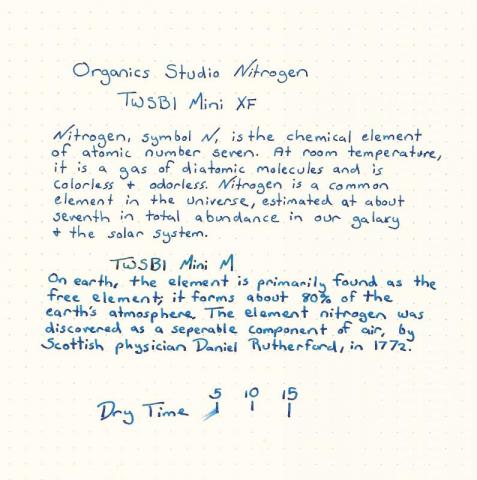 Organics Studio Nitrogen
TWSBI Mini XF
Nitrogen, symbol N, is the chemical element
of atomic number seven. At room temperature,
it is a gas of diatomic molecules and is
colorless + odorless. Nitrogen is a common
element in the universe, estimated at about
seventh in total abundance in our galaxy
+ the solar system.
TWSBI Mini M
On earth, the element is primarily found as the
free element; it forms about 80% of the
earth's atmosphere. The element nitrogen was
discovered as a seperable component of air, by
Scottish physician Daniel Rutherford, in 1772.
5 10 15
Dry Time